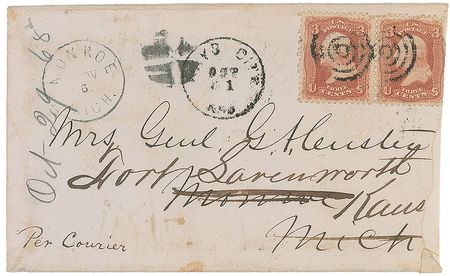 MONROE
OV
6
MICH.
Oct-29-68
YS CITY
OCT
31
KAS
3 U.S. POSTAGE 3
U THREE CENTS S
3 U.S. POSTAGE 3
U THREE CENTS S
Mrs. Genl. G A Custer
Fort Leavenworth
Monroe Kans
Mich
Per Courier